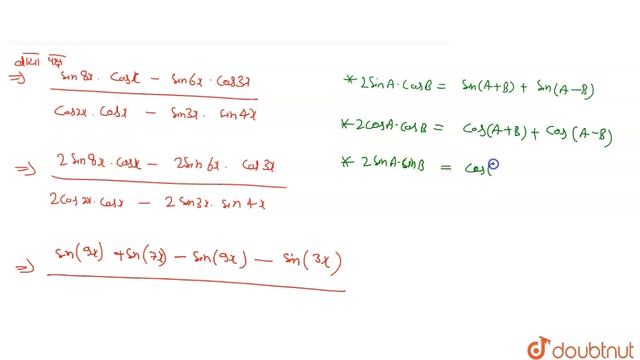 बायां पक्ष
⇒ sin8x · cosx − sin6x · cos3x
cos2x · cosx − sin3x · sin4x
⇒ 2 sin8x · cosx − 2sin6x · cos3x
2cos2x · cosx − 2 sin3x · sin4x
⇒ sin(9x) + sin(7x) − sin(9x) − sin(3x)
* 2SinA·cosB = sin(A+B) + sin(A−B)
* 2cosA·cosB = cos(A+B) + cos(A−B)
* 2sinA·sinB = cos(
doubtnut